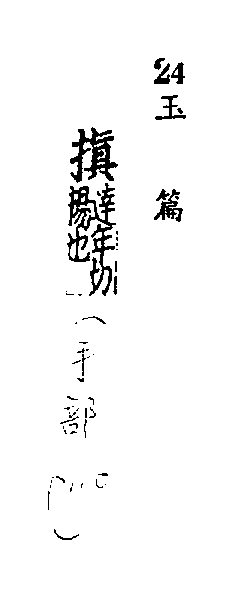 24
玉篇
搷
達年切
揚也
(手部 )